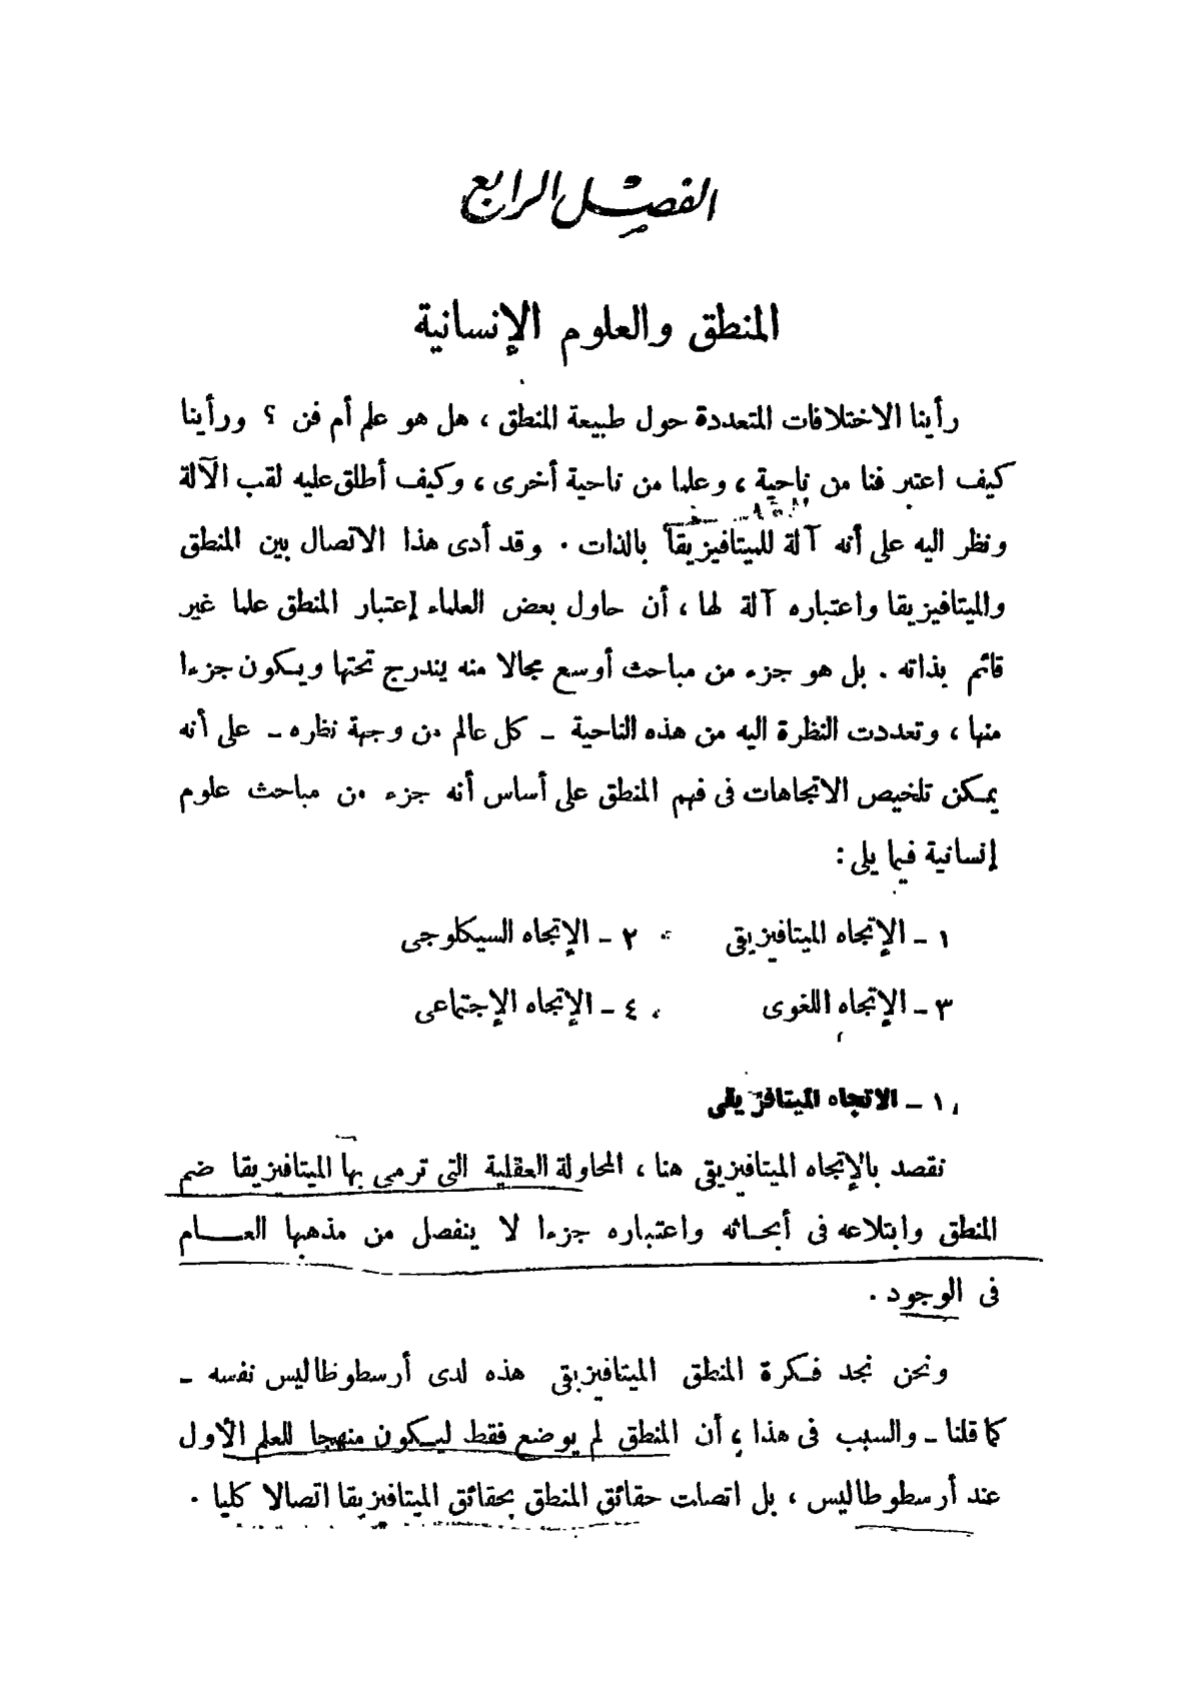 الفصل الرابع
المنطق والعلوم الإنسانية
رأينا الاختلافات المتعددة حول طبيعة المنطق ، هل هو علم أم فن ؟ ورأينا
كيف اعتبر فنا من ناحية ، وعلما من ناحية أخرى ، وكيف أطلق عليه لقب الآلة
ونظر اليه على أنه آلة للميتافيزيقا بالذات . وقد أدى هذا الاتصال بين المنطق
والميتافيزيقا واعتباره آلة لها ، أن حاول بعض العلماء إعتبار المنطق علما غير
قائم بذاته . بل هو جزء من مباحث أوسع مجالا منه يندرج تحتها ويكون جزءا
منها ، وتعددت النظرة اليه من هذه الناحية ـ كل عالم من وجهة نظره ـ على أنه
يمكن تلخيص الاتجاهات فى فهم المنطق على أساس أنه جزء من مباحث علوم
إنسانية فيما يلى :
١ ـ الإتجاه الميتافيزيقى ٢ ـ الإتجاه السيكلوجى
٣ ـ الإتجاه اللغوى ٤ ـ الإتجاه الإجتماعى
١ ـ الاتجاه الميتافزيقى
نقصد بالإتجاه الميتافيزيقى هنا ، المحاولة العقلية التى ترمى بها الميتافيزيقا ضم
المنطق وابتلاعه فى أبحاثه واعتباره جزءا لا ينفصل من مذهبها العـــام
فى الوجود .
ونحن نجد فكرة المنطق الميتافيزيقى هذه لدى أرسطوطاليس نفسه ـ
كما قلنا ـ والسبب فى هذا ، أن المنطق لم يوضع فقط ليكون منهجا للعلم الأول
عند أرسطوطاليس ، بل اتصلت حقائق المنطق بحقائق الميتافيزيقا اتصالا كليا .